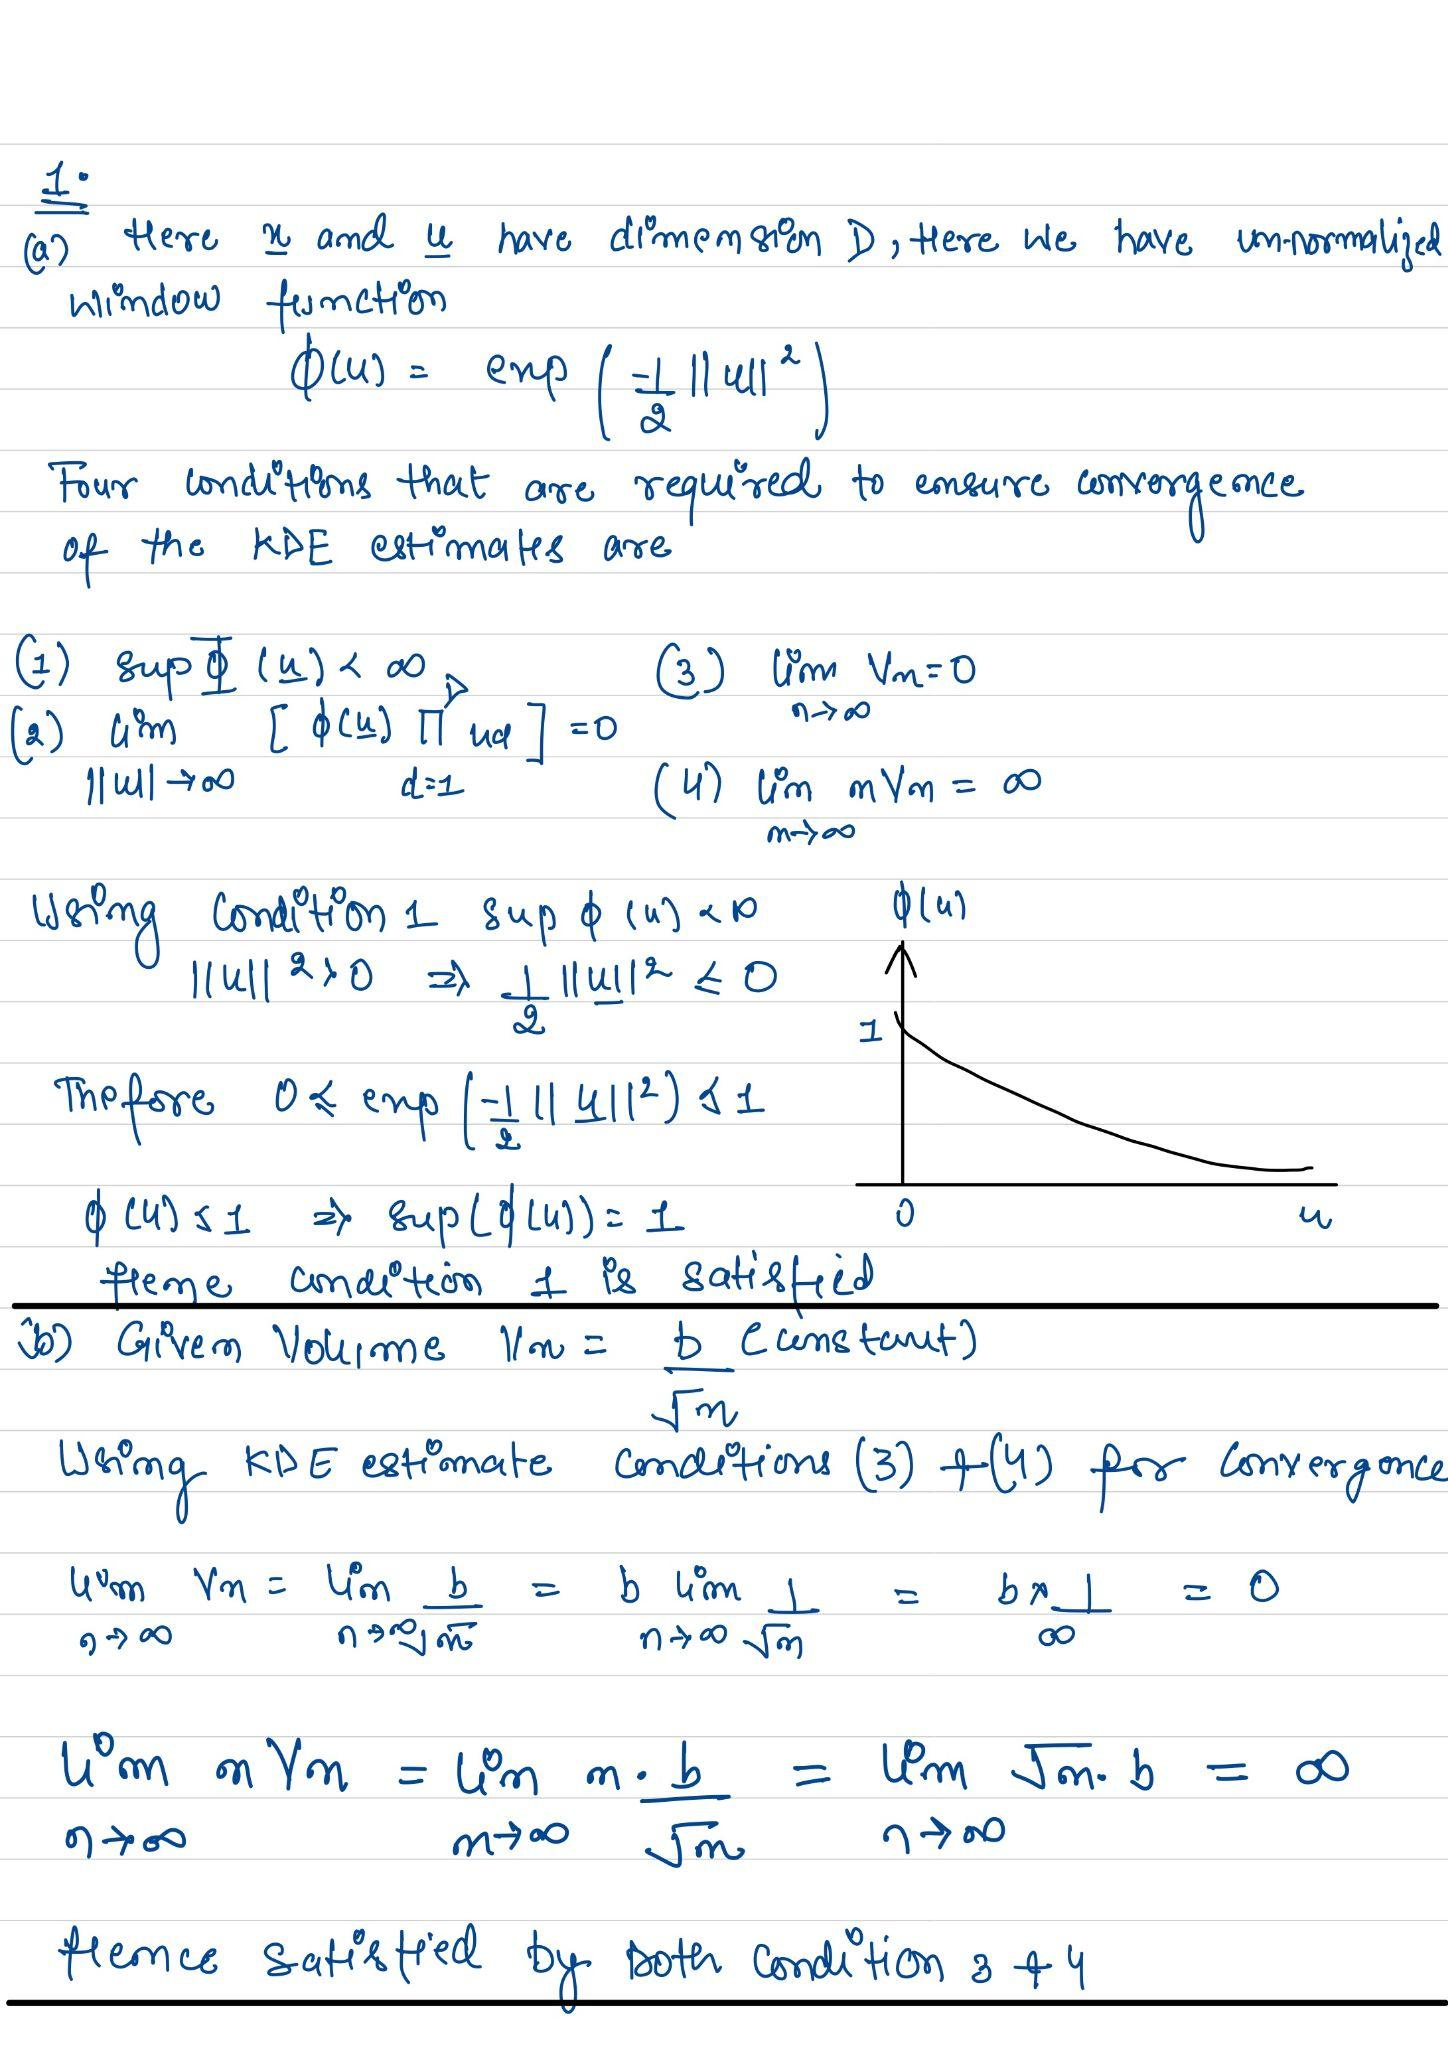 1.
(a) Here x and u have dimension D, Here we have un-normalized
window function
ϕ(u) = exp ( -1/2 ||u||² )
Four conditions that are required to ensure convergence
of the KDE estimates are
(1) sup Φ (u) < ∞
(2) lim ||u|| → ∞ [ ϕ(u) ∏ d=1 D ud ] = 0
(3) lim n→∞ Vn = 0
(4) lim n→∞ nVn = ∞
Using Condition 1 sup ϕ (u) < ∞
||u||² ≥ 0 ⇒ 1/2 ||u||² ≤ 0
Thefore 0 ≤ exp ( -1/2 ||u||² ) ≤ 1
ϕ(u) ≤ 1 ⇒ sup(ϕ(u)) = 1
Hene condition 1 is satisfied
ϕ(u)
1
0 u
b) Given Volume Vn = b/√n (constant)
Using KDE estimate conditions (3) + (4) for convergence
lim n→∞ Vn = lim n→∞ b/√n = b lim n→∞ 1/√n = b × 1/∞ = 0
lim n→∞ nVn = lim n→∞ n · b/√n = lim n→∞ √n · b = ∞
Hence satisfied by both condition 3 + 4